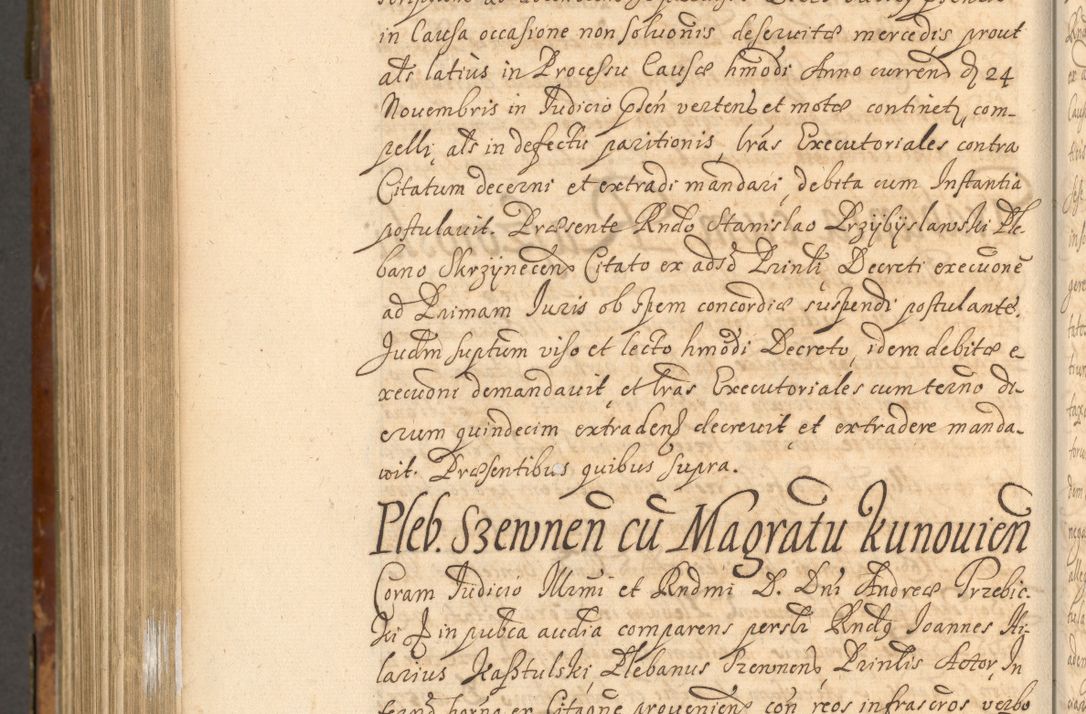 in Causa occasione non soluonis deseruitæ mercedis prout
als latius in Processu Causæ hmodi Anno curren d 24
Nouembris in Judicio Pñ vertens et motæ continet, com-
pelli, als in defectu paritionis, lras Executoriales contra
Citatum decerni et extradi mandari, debita cum Instantia
postulauit. Præsente Rndo Stanislao Przybysławski Ple-
bano Skrzynecen Citato ex adso Prinli Decreti execuonē
ad Primam Juris ob spem concordiæ suspendi postulante.
Judm suptum viso et lecto hmodi Decreto, idem debitæ e-
xecuoni demandauit, et lras Executoriales cum termo di-
erum quindecim extraden decreuit et extradere manda-
uit. Præsentibus quibus supra.
Pleb. Szewnen̄ cū Magratu kunouien̄
Coram Judicio Illrmi et Rndmi D. Dni Andreæ Przebic-
ki in pubca audia comparens persli Rndq Joannes Hi-
larius Kasztulski, Plebanus Szewnens Prinlis Actor, In
horna ex Citaone proueniens con reos infrascros verbo